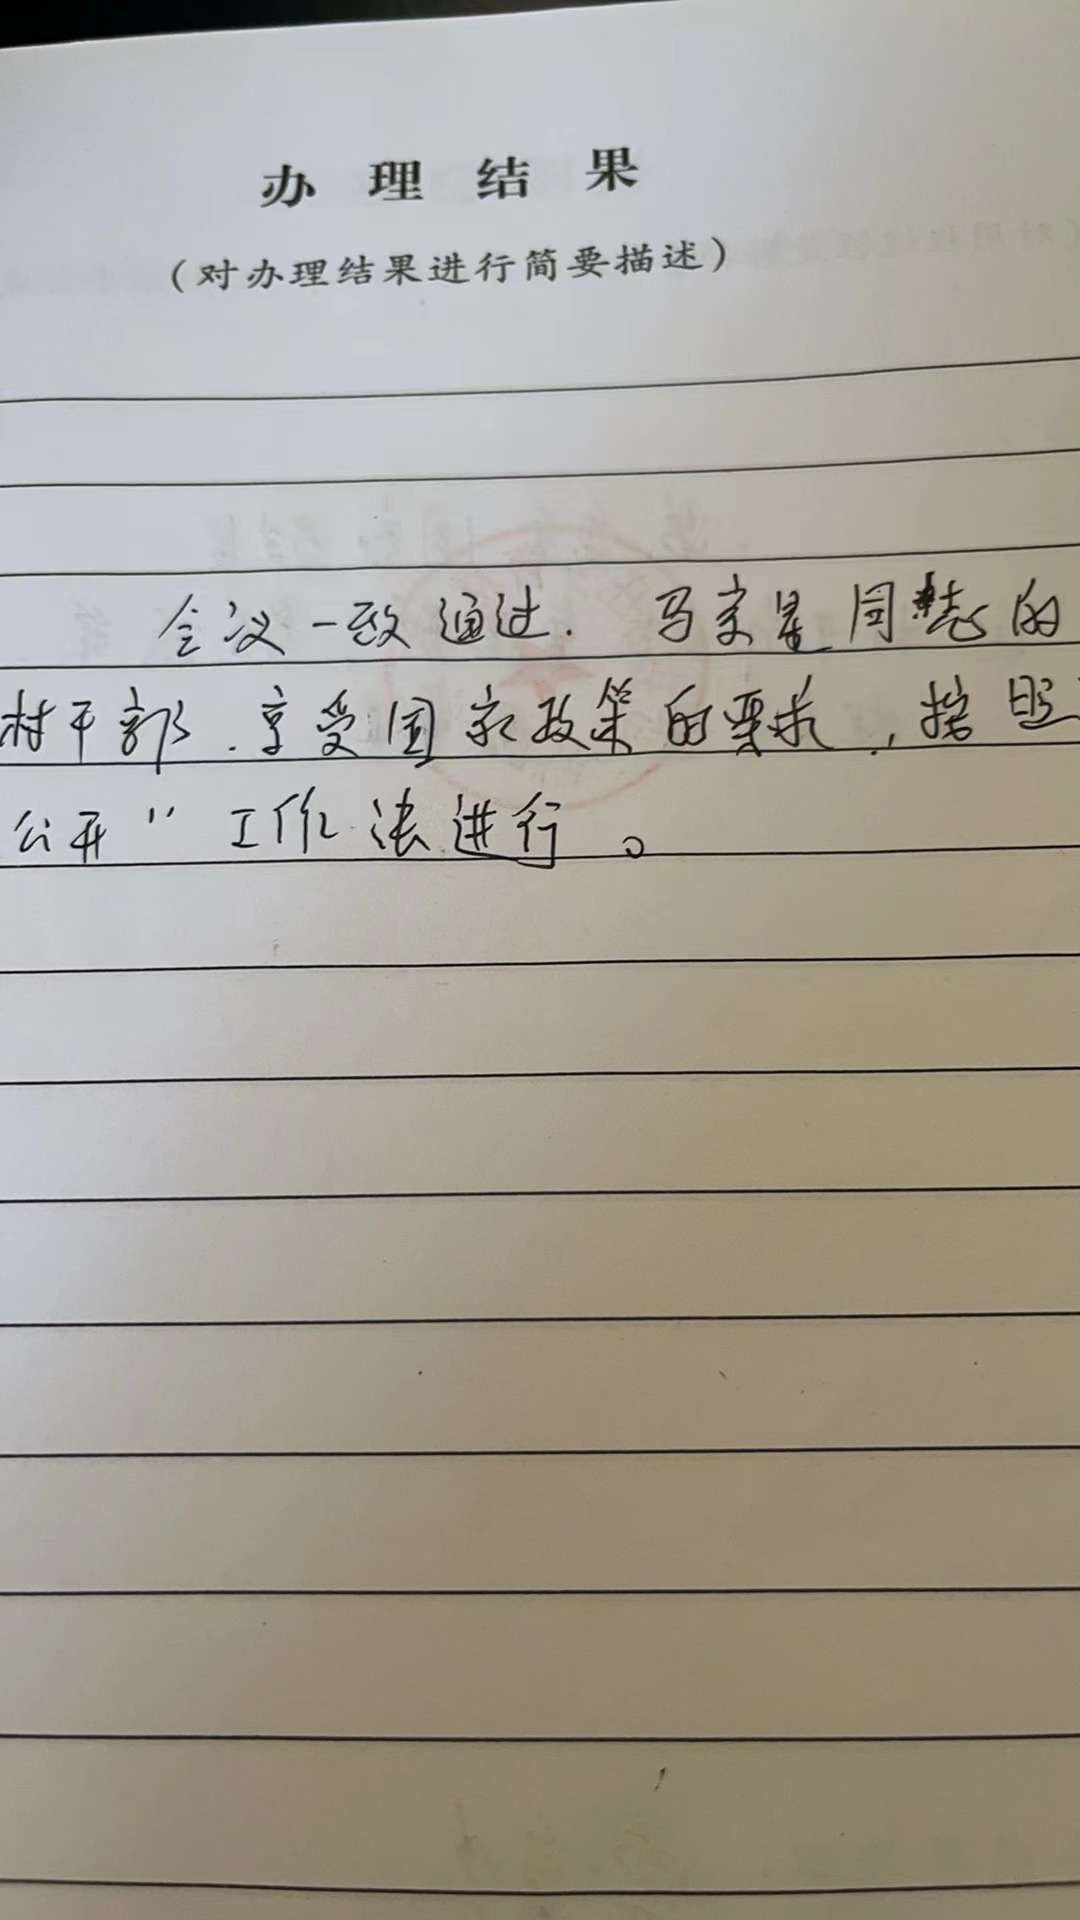 办理结果
（对办理结果进行简要描述）
会议一致通过. 马宗星同志的
村干部.享受国家政策的要求,按照
公开" 工作法进行。